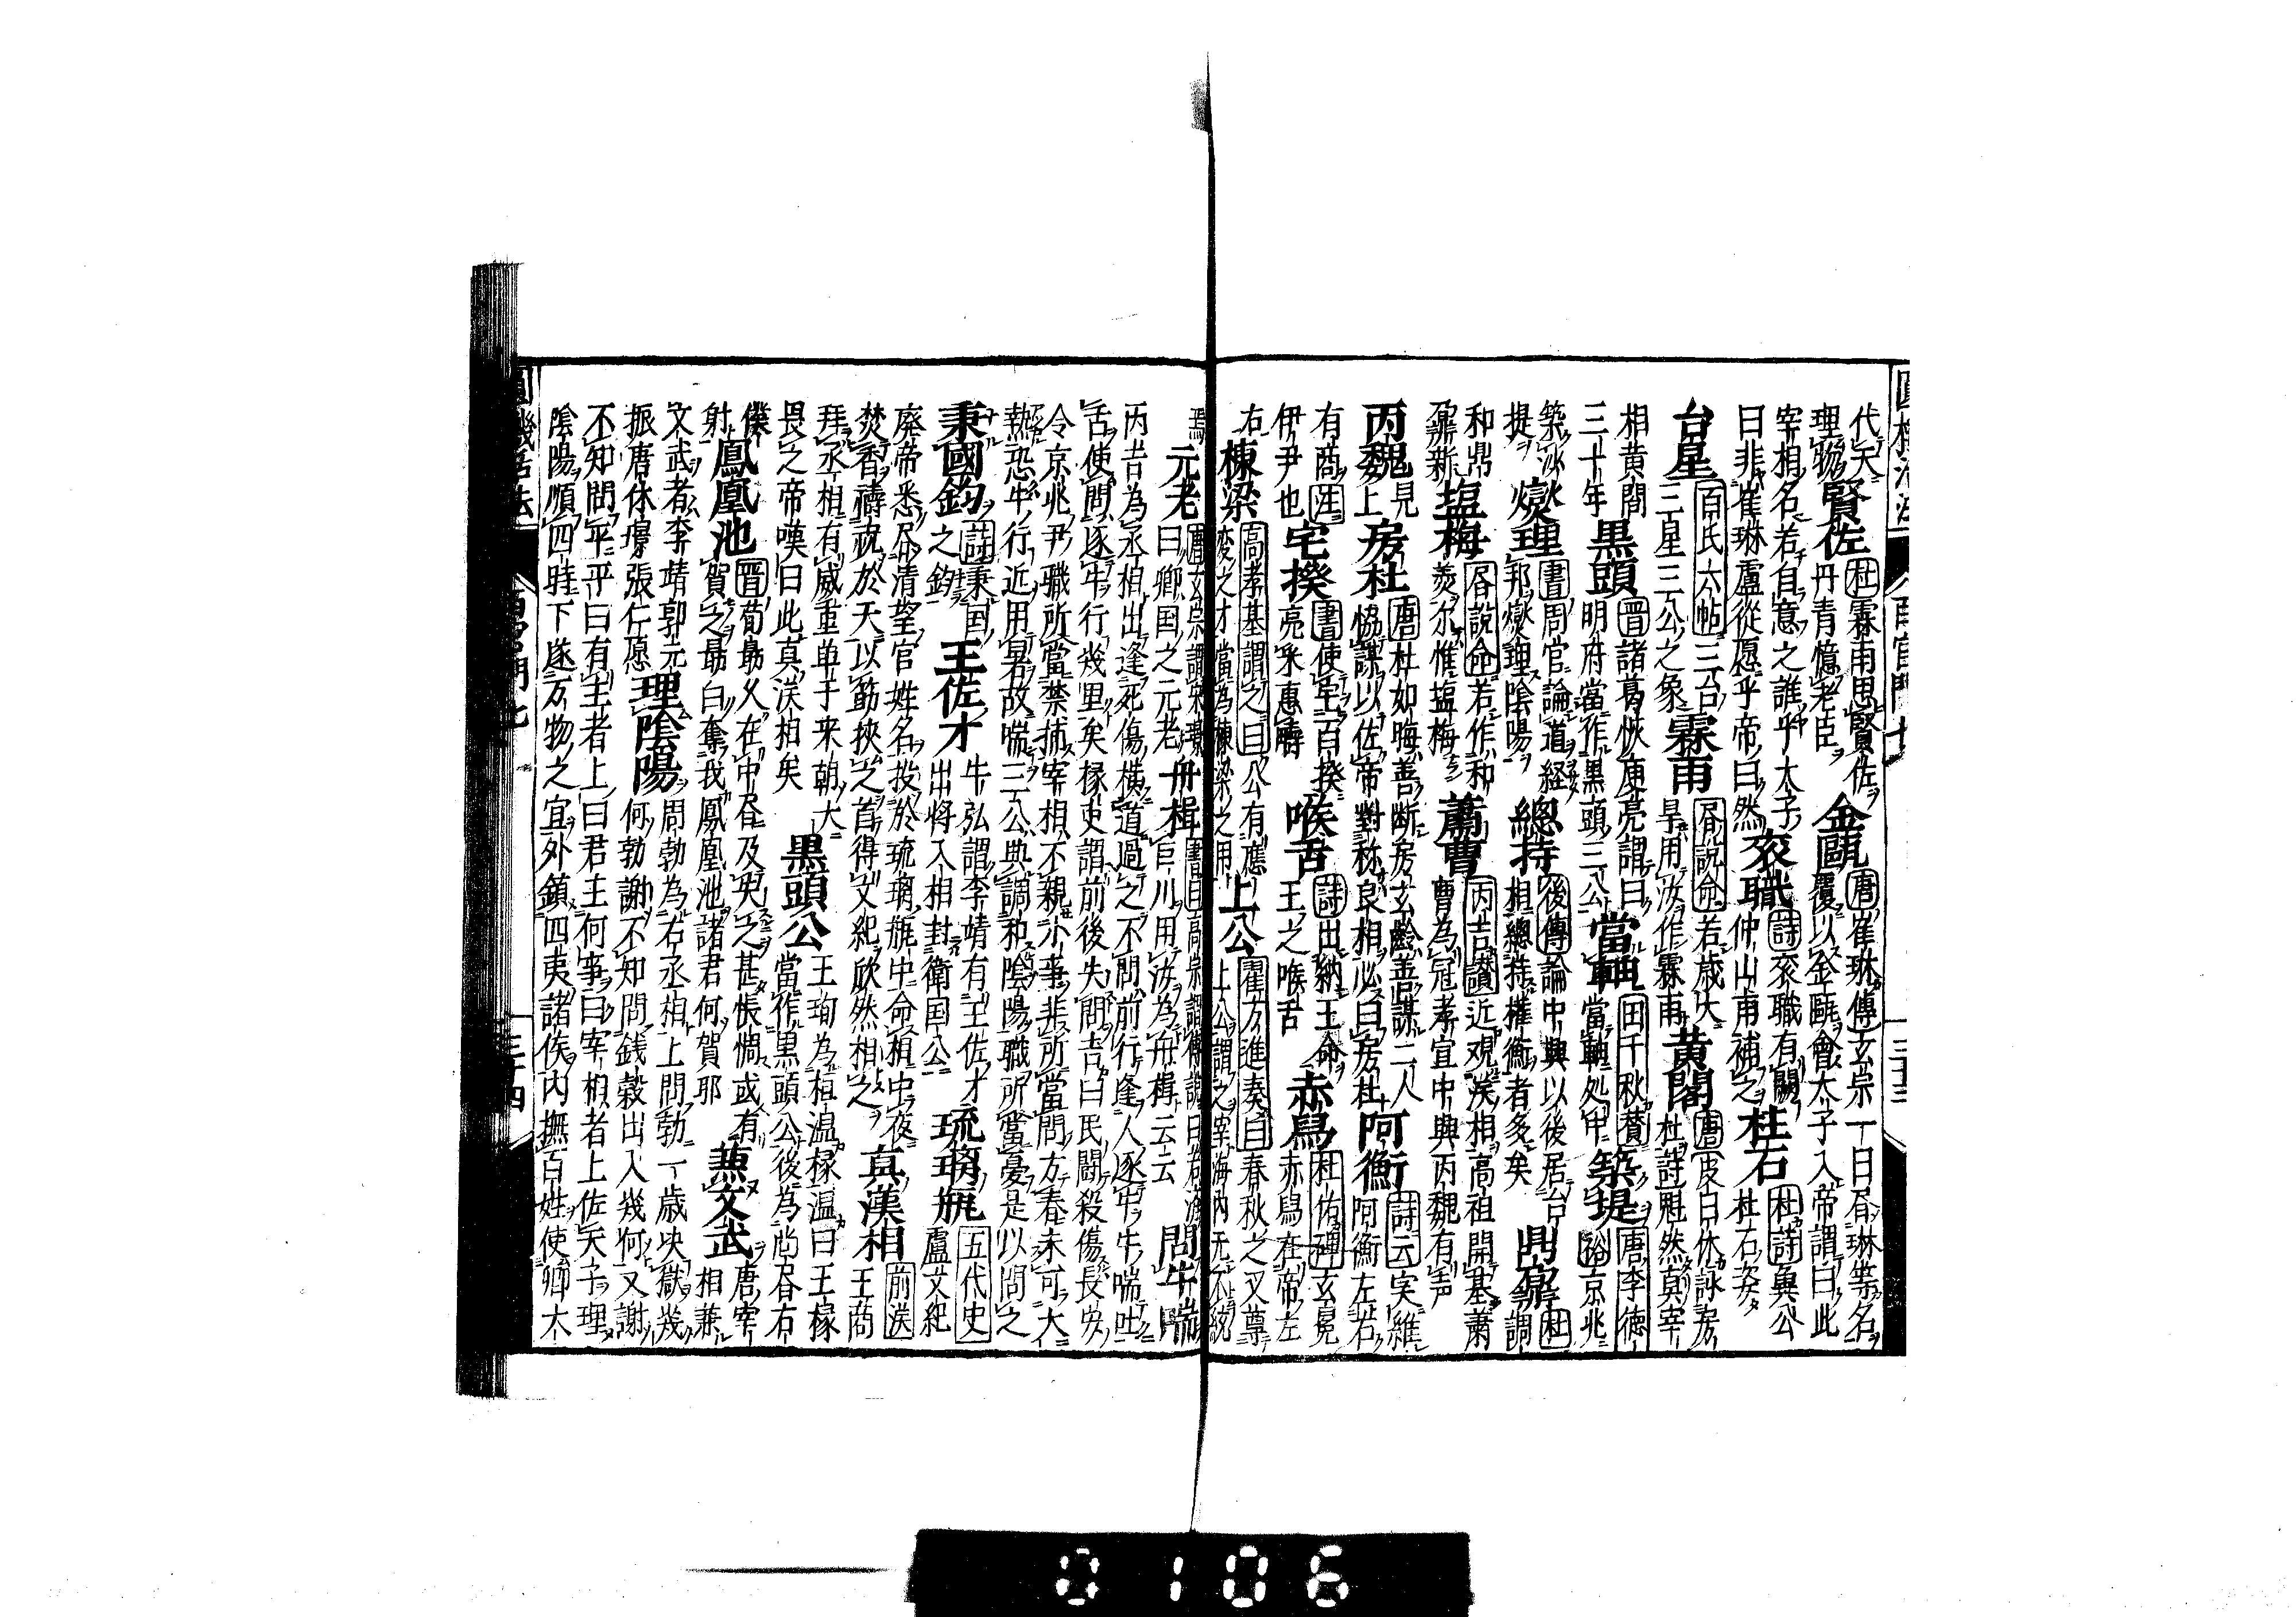 代天
理物賢佐杜霖雨思賢佐
丹青憶老臣金甌唐崔琳傳玄宗一日昼琳等名
覆以金甌會太子入帝謂曰此
宰相名若自意之誰乎太子
曰非崔琳盧從愿乎帝曰然衮職詩衮職有闕
仲山甫補之柱石杜詩魯公
柱石姿
台星百氏六帖三台
三星三公之象霖雨昼説命若歳大
旱用汝作霖雨黄閣唐皮日休詠房
杜詩魁然真宰
相黄閣
三十年黒頭晋諸葛恢庾亮謂曰
明府當作黒頭三公當軸田千秋賛
當軸処中築堤唐李徳
裕京兆
築沙
堤燮理書周官論道経
邦燮理陰陽總持後傳論中興以後居台
相總持摧衡者多矣鼎鼐杜調
和鼎
鼐新塩梅昼説命若作和
羮尓惟塩梅蕭曹丙吉讃近观漢相高祖開基蕭
曹為冠孝宣中興丙魏有声
丙魏見
上房杜唐杜如晦善断房玄齢善謀二人
恊謀以佐帝對称良相必曰房杜阿衡詩云实維
阿衡左右
有商注
伊尹也宅揆書使宅百揆
亮采惠疇喉舌詩出納王命
王之喉舌赤舄杜佑碑玄冕
赤舄在帝左
右棟梁高孝基謂之曰
変之才當為棟梁之用公有應上公翟方進奏曰春秋之义尊
上公謂之宰海内无不統
焉元老唐玄宗謂宋璟
曰卿国之元老舟楫書曰高宗謂傅説曰若済
巨川用汝為舟楫云云問牛喘
丙吉為丞相出逢死傷橫道過之不問前行逢人逐牛牛喘吐
舌使問逐牛行幾里矣掾吏謂前後失問吉曰民闘殺傷長安
令京兆尹職所當禁捕宰相不親小事非所當問方春未可大
熱恐牛行近用暑故喘三公典調和陰陽職所當憂是以問之
秉國鈞詩秉国
之鈞王佐才牛弘謂李靖有王佐才
出将入相封衛国公琉璃瓶五代史
盧文紀
廃帝悉昼清望官姓名投於琉璃瓶中命相中夜
焚香禱祝於天以筯挾之首得文紀欣然相之真漢相前漢
王商
拜丞相有威重单于来朝大
畏之帝嘆曰此真漢相矣黒頭公王珣為桓温掾温曰王掾
當作黒頭公後為尚昼右
僕
射鳳凰池晋荀勗久在中昼及失之甚悵惆或有
賀之勗曰奪我鳳凰池諸君何賀耶兼文武唐宰
相兼
文武者李靖郭元
振唐休璟張仁愿理陰陽周勃為右丞相上問勃一歳决獄幾
何勃謝不知問銭穀出入幾何又謝
不知問平平曰有主者上曰君主何事曰宰相者上佐天子理
陰陽順四時下遂万物之宜外鎮四夷諸侯内撫百姓使卿大
三十四
0106